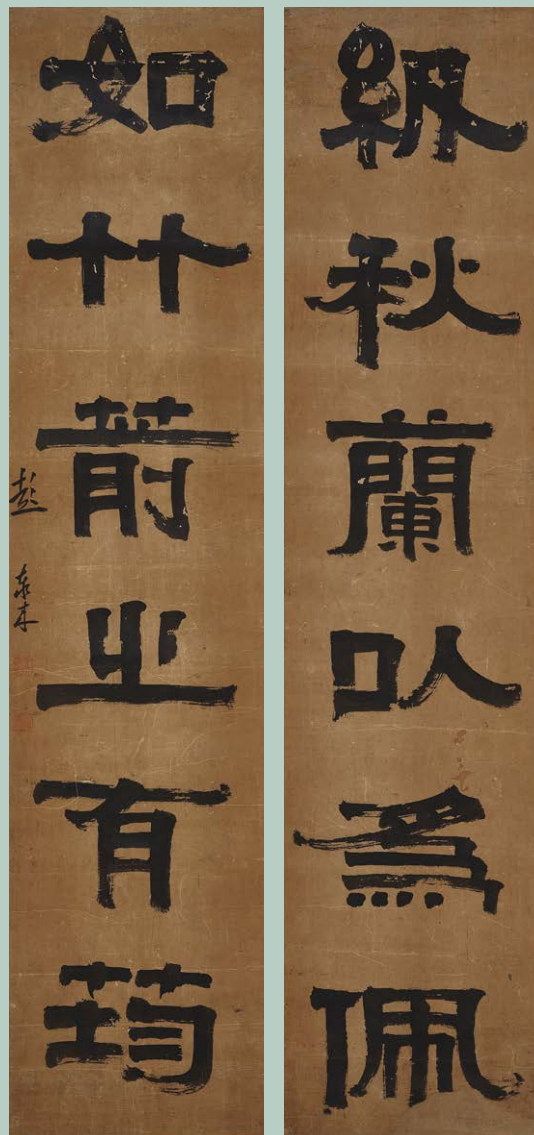 紉秋蘭以爲佩
如竹箭之有筠
彭泰來